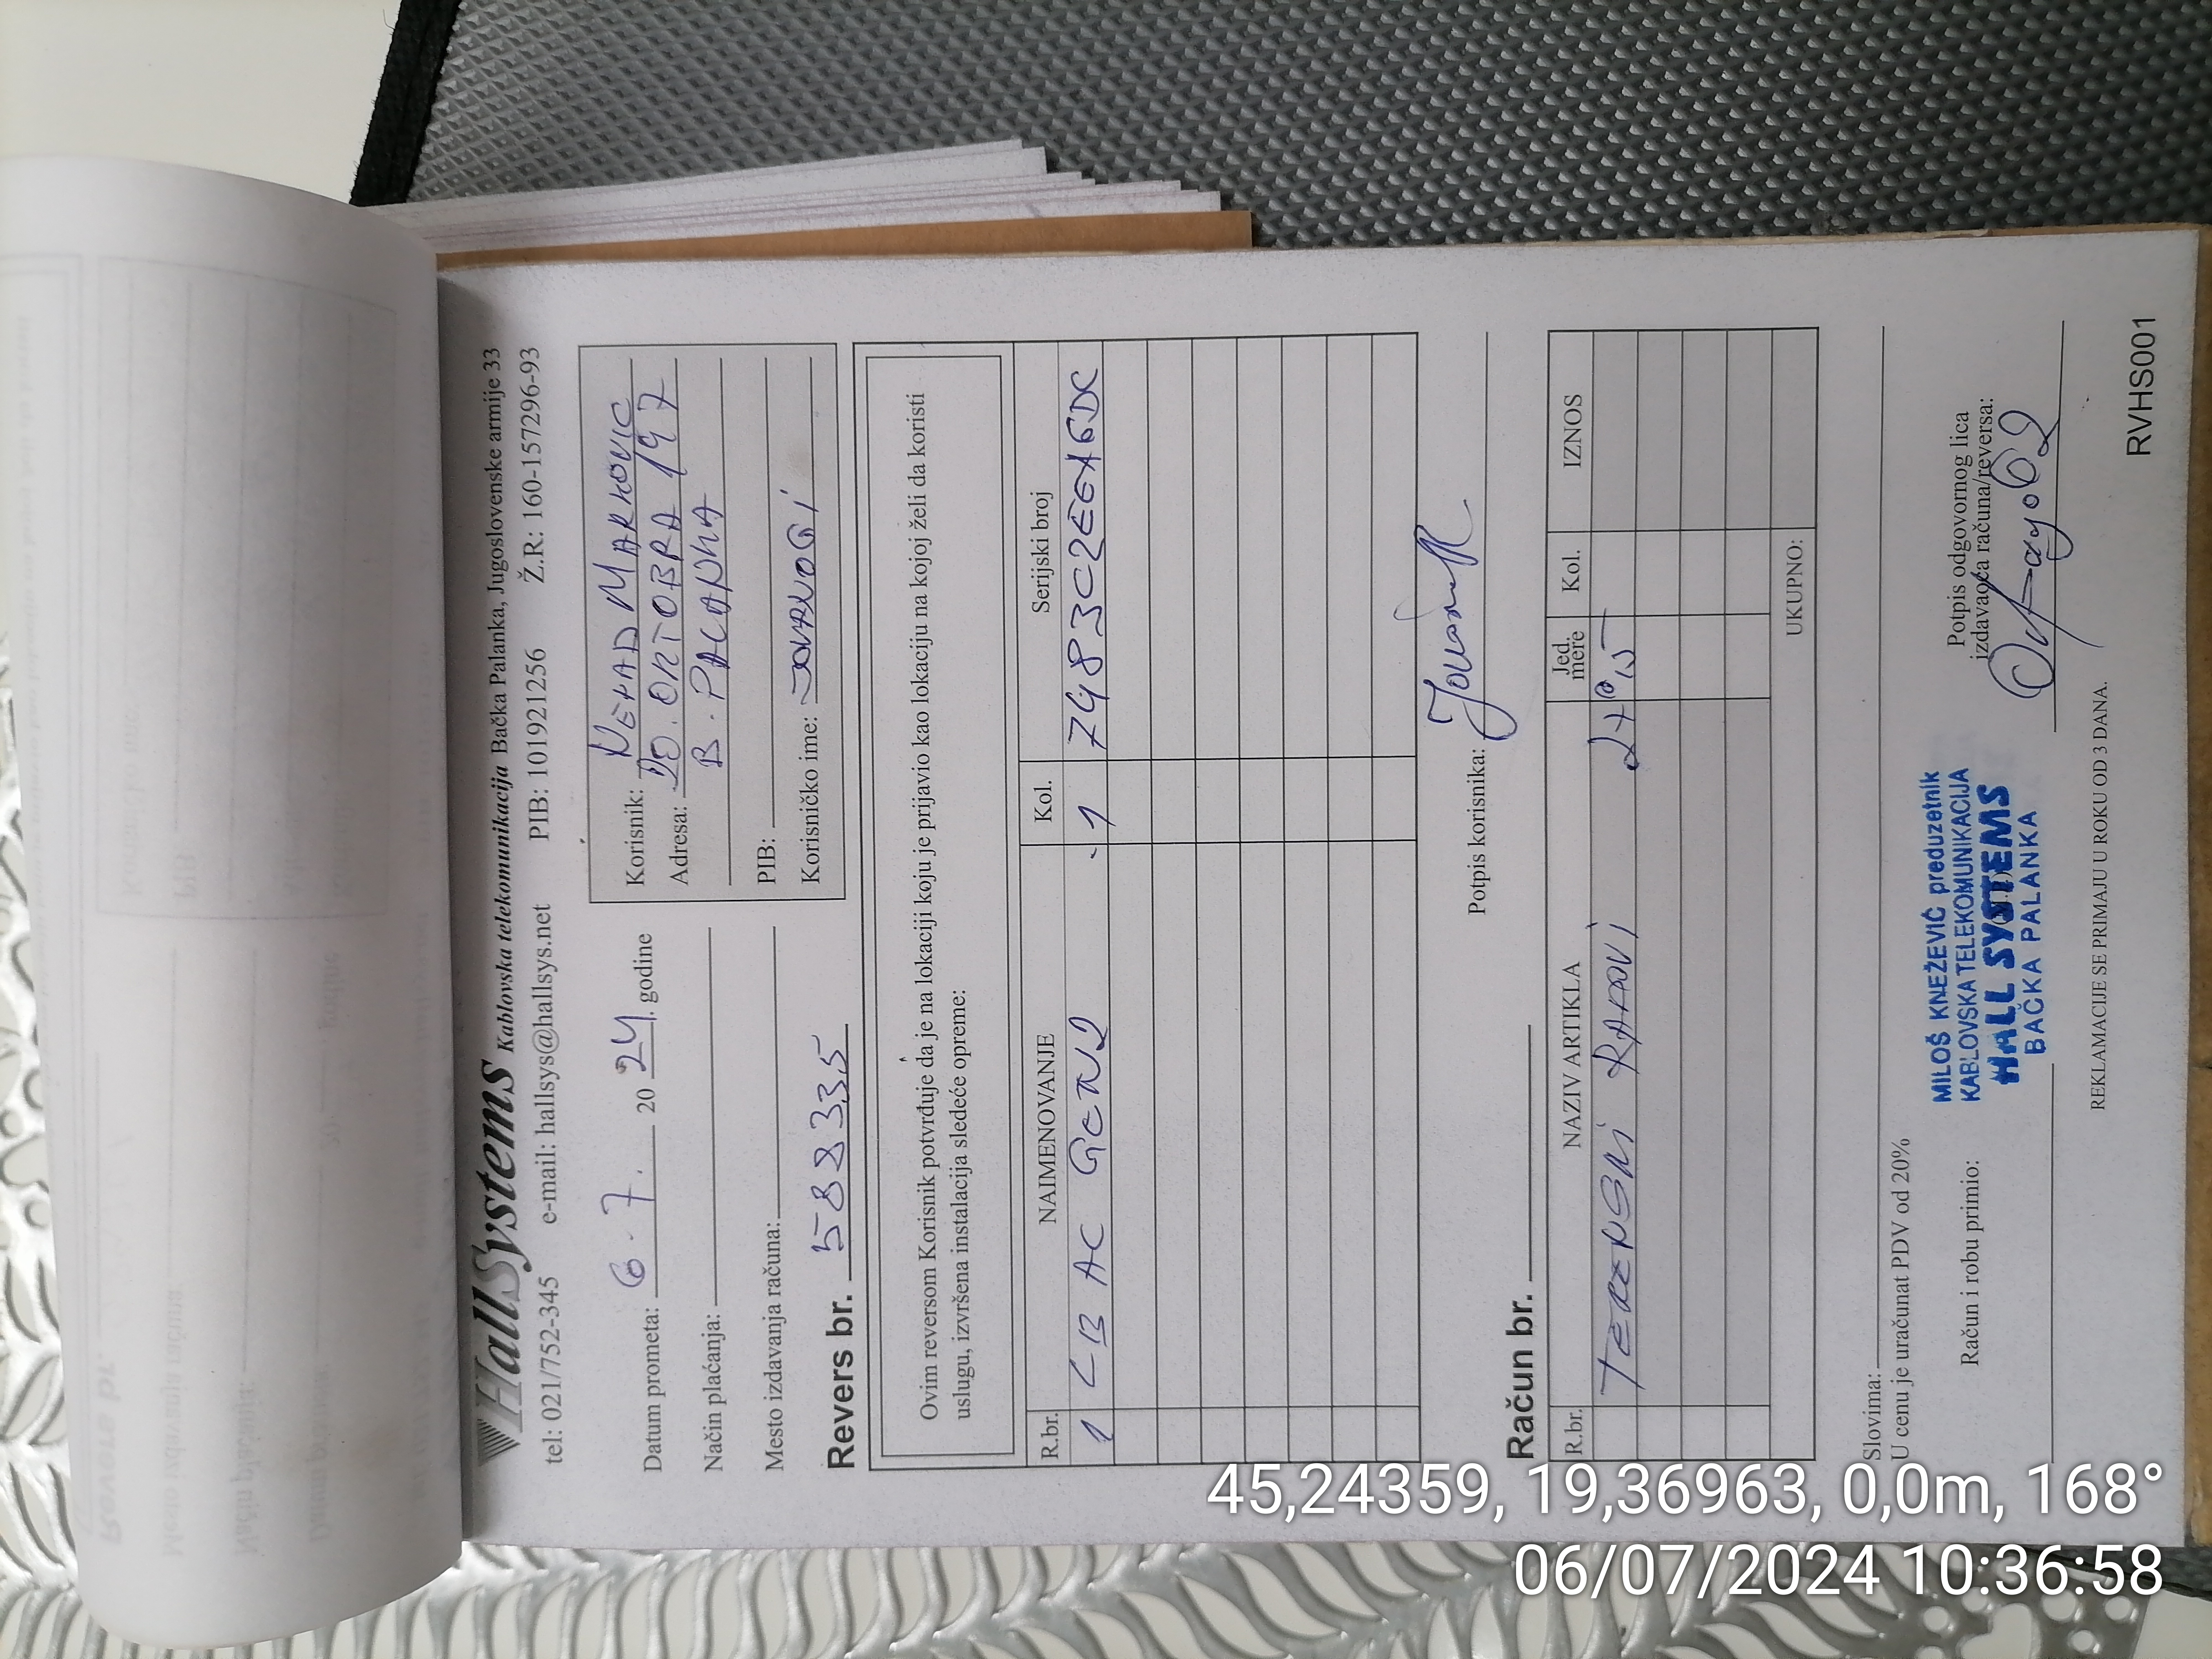 HallSystems Kablovska telekomunikacija Bačka Palanka, Jugoslovenske armije 33
tel: 021/752-345 e-mail: hallsys@hallsys.net PIB: 101921256 Ž.R: 160-157296-93
Datum prometa: 6.7. 2024. godine
Način plaćanja:
Mesto izdavanja računa:
Korisnik: NENAD MARKOVIC
Adresa: 20. OKTOBRA 197
B. PALANKA
PIB:
Korisničko ime:
Revers br. 588335
Ovim reversom Korisnik potvrđuje da je na lokaciji koju je prijavio kao lokaciju na kojoj želi da koristi
uslugu, izvršena instalacija sledeće opreme:
R.br. NAIMENOVANJE Kol. Serijski broj
1 LB AC GEN2 1 7483C2EEA6DC
Potpis korisnika:
Račun br.
R.br. NAZIV ARTIKLA Jed. mere Kol. IZNOS
TERENSKI RADOVI
UKUPNO:
Slovima:
U cenu je uračunat PDV od 20%
Račun i robu primio:
MILOŠ KNEŽEVIĆ preduzetnik
KABLOVSKA TELEKOMUNIKACIJA
HALL SYSTEMS
BAČKA PALANKA
Potpis odgovornog lica
izdavaoca računa/reversa:
REKLAMACIJE SE PRIMAJU U ROKU OD 3 DANA.
RVHS001
45,24359, 19,36963, 0,0m, 168°
06/07/2024 10:36:58